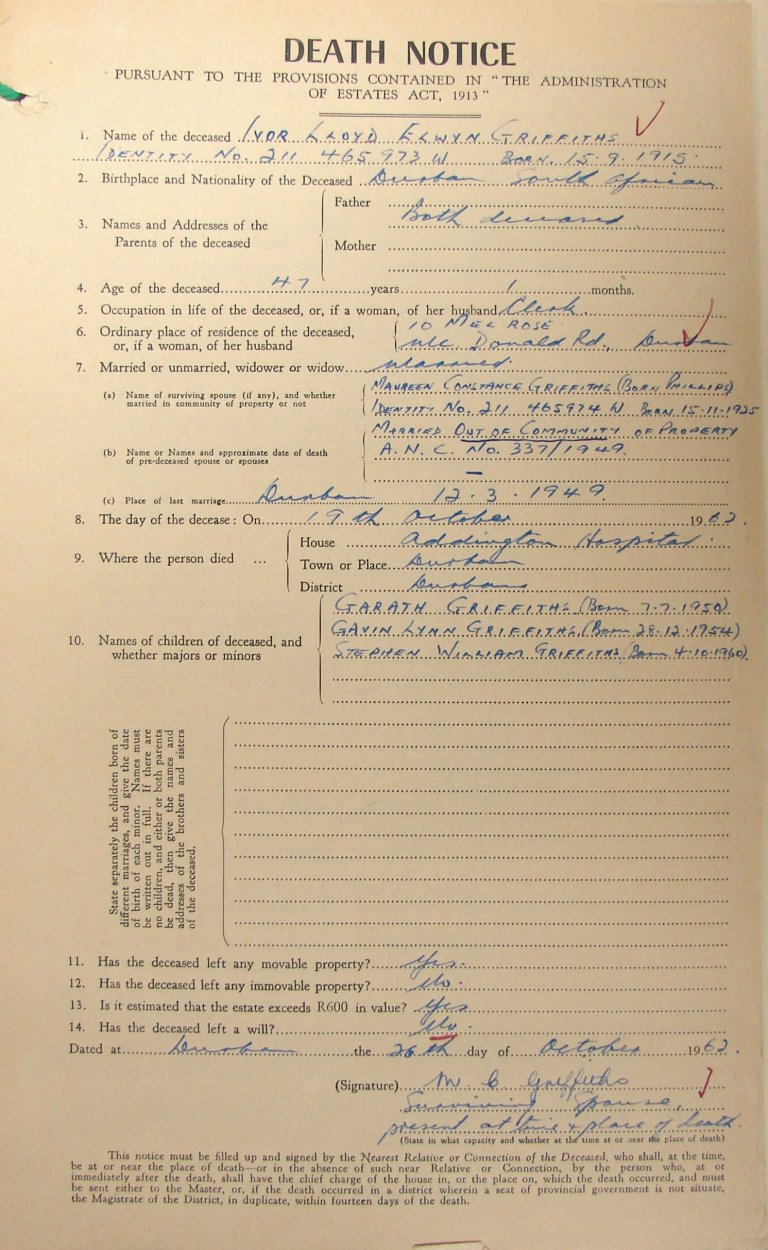 DEATH NOTICE
PURSUANT TO THE PROVISIONS CONTAINED IN "THE ADMINISTRATION
OF ESTATES ACT, 1913"
1. Name of the deceased IVOR LLOYD ELWYN GRIFFITHS
IDENTITY No. 211 465973 W BORN. 15.9.1915.
2. Birthplace and Nationality of the Deceased Durban South African
3. Names and Addresses of the Parents of the deceased
Father Both deceased
Mother
4. Age of the deceased 47 years 1 months.
5. Occupation in life of the deceased, or, if a woman, of her husband Clerk.
6. Ordinary place of residence of the deceased, or, if a woman, of her husband
10 MELROSE
Mc Donald Rd., Durban
7. Married or unmarried, widower or widow Married.
(a) Name of surviving spouse (if any), and whether married in community of property or not
MAUREEN CONSTANCE GRIFFITHS (BORN PHILLIPS)
IDENTITY No. 211 465974 W BORN 15-11-1925
MARRIED OUT OF COMMUNITY OF PROPERTY
A.N.C. No. 337/1949.
(b) Name or Names and approximate date of death of pre-deceased spouse or spouses
—
(c) Place of last marriage Durban 12.3.1949.
8. The day of the decease: On 19th October 1962.
9. Where the person died ...
House Addington Hospital.
Town or Place Durban
District Durban
10. Names of children of deceased, and whether majors or minors
GARATH GRIFFITHS (Born 7-7-1950)
GAVIN LYNN GRIFFITHS (Born 28-12-1954)
STEPHEN WILLIAM GRIFFITHS (Born 4-10-1960)
State separately the children born of
different marriages, and give the date
of birth of each minor. Names must
be written out in full. If there are
no children, and either or both parents
be dead, then give the names and
addresses of the brothers and sisters
of the deceased.
11. Has the deceased left any movable property? Yes.
12. Has the deceased left any immovable property? No.
13. Is it estimated that the estate exceeds R600 in value? Yes
14. Has the deceased left a will? No.
Dated at Durban the 26th day of October 1962.
(Signature) M C Griffiths
Surviving Spouse,
present at time & place of death.
(State in what capacity and whether at the time at or near the place of death)
This notice must be filled up and signed by the Nearest Relative or Connection of the Deceased, who shall, at the time,
be at or near the place of death—or in the absence of such near Relative or Connection, by the person who, at or
immediately after the death, shall have the chief charge of the house in, or the place on, which the death occurred, and must
be sent either to the Master, or, if the death occurred in a district wherein a seat of provincial government is not situate,
the Magistrate of the District, in duplicate, within fourteen days of the death.